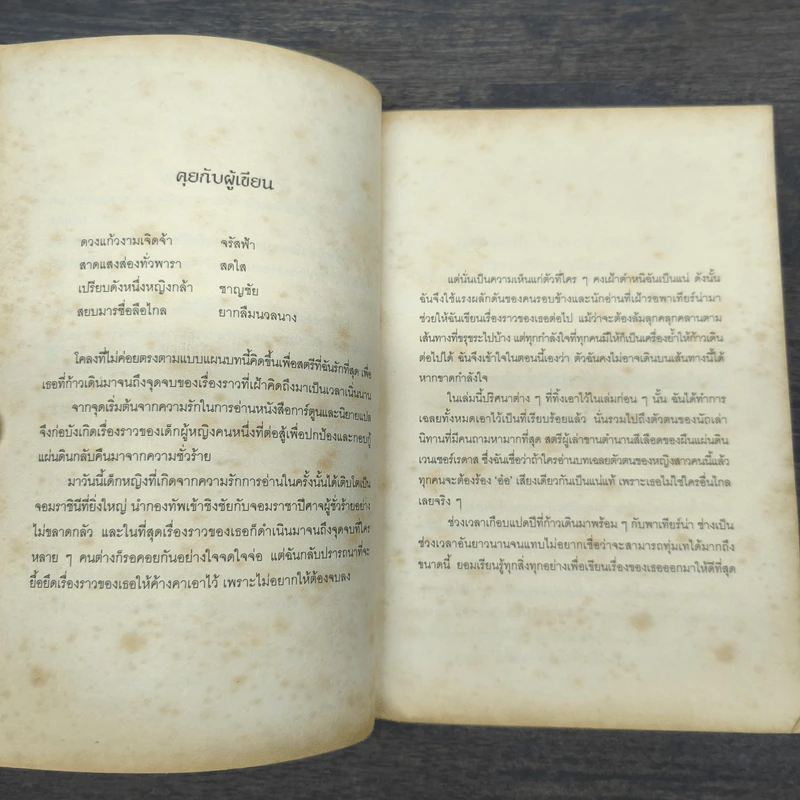 คุยกับผู้เขียน
ดวงแก้วงามเจิดจ้า จรัสฟ้า
สาดแสงส่องทั่วพารา สดใส
เปรียบดังหนึ่งหญิงกล้า ชาญชัย
สยบมารชื่อลือไกล ยากลืมนวลนาง
โคลงที่ไม่ค่อยตรงตามแบบแผนบทนี้คิดขึ้นเพื่อสตรีที่ฉันรักที่สุด เพื่อ
เธอที่ก้าวเดินมาจนถึงจุดจบของเรื่องราวที่เฝ้าคิดถึงมาเป็นเวลาเนิ่นนาน
จากจุดเริ่มต้นจากความรักในการอ่านหนังสือการ์ตูนและนิยายแปล
จึงก่อบังเกิดเรื่องราวของเด็กผู้หญิงคนหนึ่งที่ต่อสู้เพื่อปกป้องและกอบกู้
แผ่นดินกลับคืนมาจากความชั่วร้าย
มาวันนี้เด็กหญิงที่เกิดจากความรักการอ่านในครั้งนั้นได้เติบโตเป็น
จอมราชินีที่ยิ่งใหญ่ นำกองทัพเข้าชิงชัยกับจอมราชาปีศาจผู้ชั่วร้ายอย่าง
ไม่ขลาดกลัว และในที่สุดเรื่องราวของเธอก็ดำเนินมาจนถึงจุดจบที่ใคร
หลาย ๆ คนต่างก็รอคอยกันอย่างใจจดใจจ่อ แต่ฉันกลับปรารถนาที่จะ
ยื้อยึดเรื่องราวของเธอให้ค้างคาเอาไว้ เพราะไม่อยากให้ต้องจบลง
แต่นั่นเป็นความเห็นแก่ตัวที่ใคร ๆ คงเฝ้าตำหนิฉันเป็นแน่ ดังนั้น
ฉันจึงใช้แรงผลักดันของคนรอบข้างและนักอ่านที่เฝ้ารอพาเทียร์น่ามา
ช่วยให้ฉันเขียนเรื่องราวของเธอต่อไป แม้ว่าจะต้องล้มลุกคลุกคลานตาม
เส้นทางที่ขรุขระไปบ้าง แต่ทุกกำลังใจที่ทุกคนมีให้ก็เป็นเครื่องย้ำให้ก้าวเดิน
ต่อไปได้ ฉันจึงเข้าใจในตอนนี้เองว่า ตัวฉันคงไม่อาจเดินบนเส้นทางนี้ได้
หากขาดกำลังใจ
ในเล่มนี้ปริศนาต่าง ๆ ที่ทิ้งเอาไว้ในเล่มก่อน ๆ นั้น ฉันได้ทำการ
เฉลยทั้งหมดเอาไว้เป็นที่เรียบร้อยแล้ว นั่นรวมไปถึงตัวตนของนักเล่า
นิทานที่มีคนถามหามากที่สุด สตรีผู้เล่าขานตำนานสีเลือดของผืนแผ่นดิน
เวนเซอร์เรดาส ซึ่งฉันเชื่อว่าถ้าใครอ่านบทเฉลยตัวตนของหญิงสาวคนนี้แล้ว
ทุกคนจะต้องร้อง 'อ๋อ' เสียงเดียวกันเป็นแน่แท้ เพราะเธอไม่ใช่ใครอื่นไกล
เลยจริง ๆ
ช่วงเวลาเกือบแปดปีที่ก้าวเดินมาพร้อม ๆ กับพาเทียร์น่า ช่างเป็น
ช่วงเวลาอันยาวนานจนแทบไม่อยากเชื่อว่าจะสามารถทุ่มเทได้มากถึง
ขนาดนี้ ยอมเรียนรู้ทุกสิ่งทุกอย่างเพื่อเขียนเรื่องของเธอออกมาให้ดีที่สุด